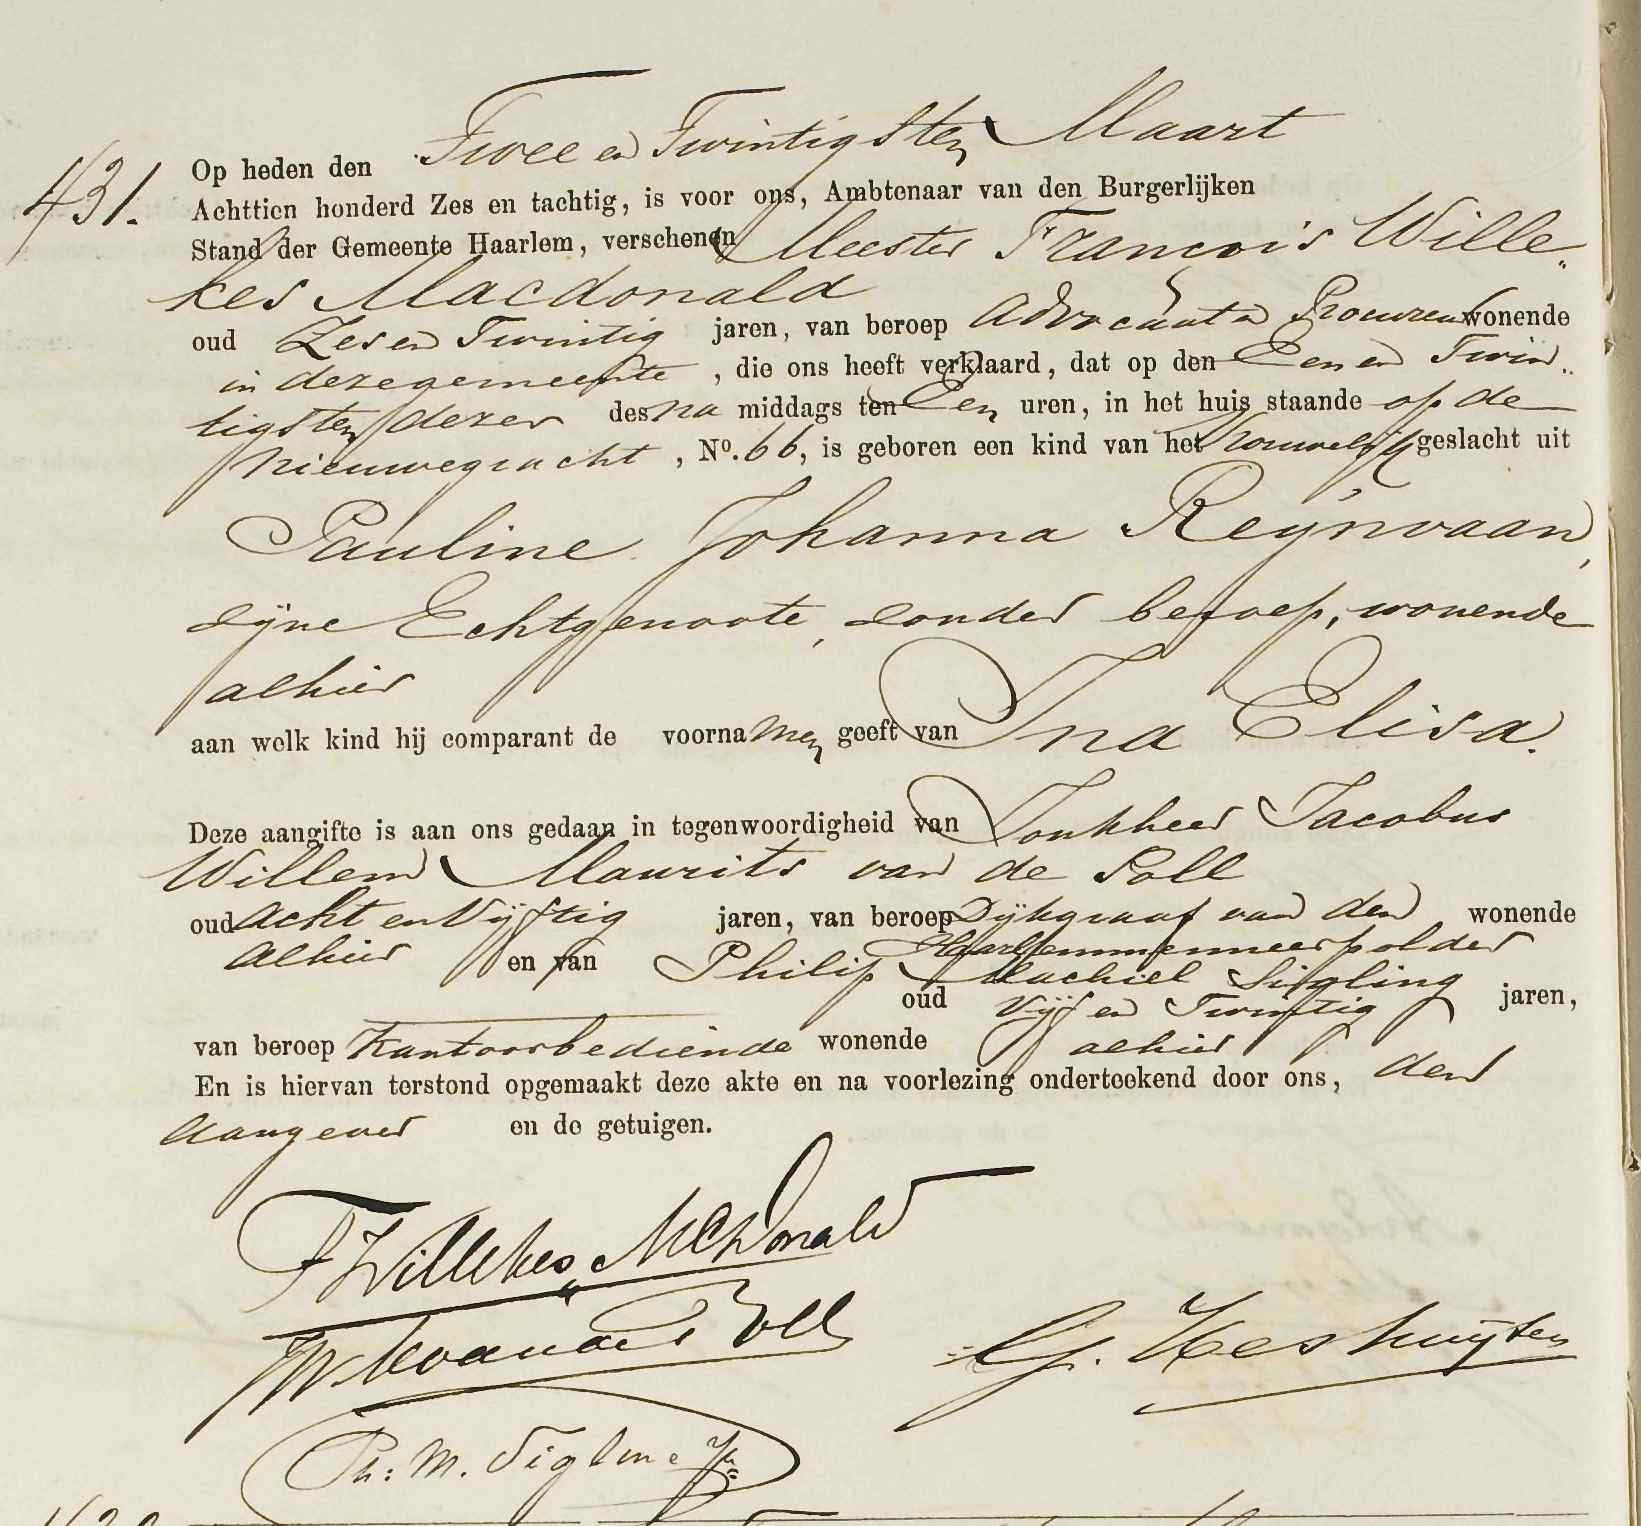 431.
Op heden den Twee en Twintigsten Maart
Achttien honderd Zes en tachtig, is voor ons, Ambtenaar van den Burgerlijken
Stand der Gemeente Haarlem, verschenen Meester Francois Wille„
kes Macdonald
oud Zes en Twintig jaren, van beroep Advocaat en Procureur wonende
in deze gemeente, die ons heeft verklaard, dat op den Een en Twin„
tigsten dezer des na middags ten Een uren, in het huis staande op de
Nieuwegracht, No. 66, is geboren een kind van het vrouwelijk geslacht uit
Pauline Johanna Reijnvaan,
zijne Echtgenoote, zonder beroep, wonende
alhier
aan welk kind hij comparant de voornamen geeft van Ina Elisa.
Deze aangifte is aan ons gedaan in tegenwoordigheid van Jonkheer Jacobus
Willem Maurits van de Poll
oud Acht en Vijftig jaren, van beroep Dijkgraaf van den wonende
Haarlemmermeerpolder
Alhier en van Philip Machiel Sigling
oud Vijf en Twintig jaren,
van beroep Kantoorbediende wonende alhier
En is hiervan terstond opgemaakt deze akte en na voorlezing onderteekend door ons, den
Aangever en de getuigen.
F Willekes McDonald
JWM van de Poll
G. Heshuijsen
Ph: M. Sigling Jr.